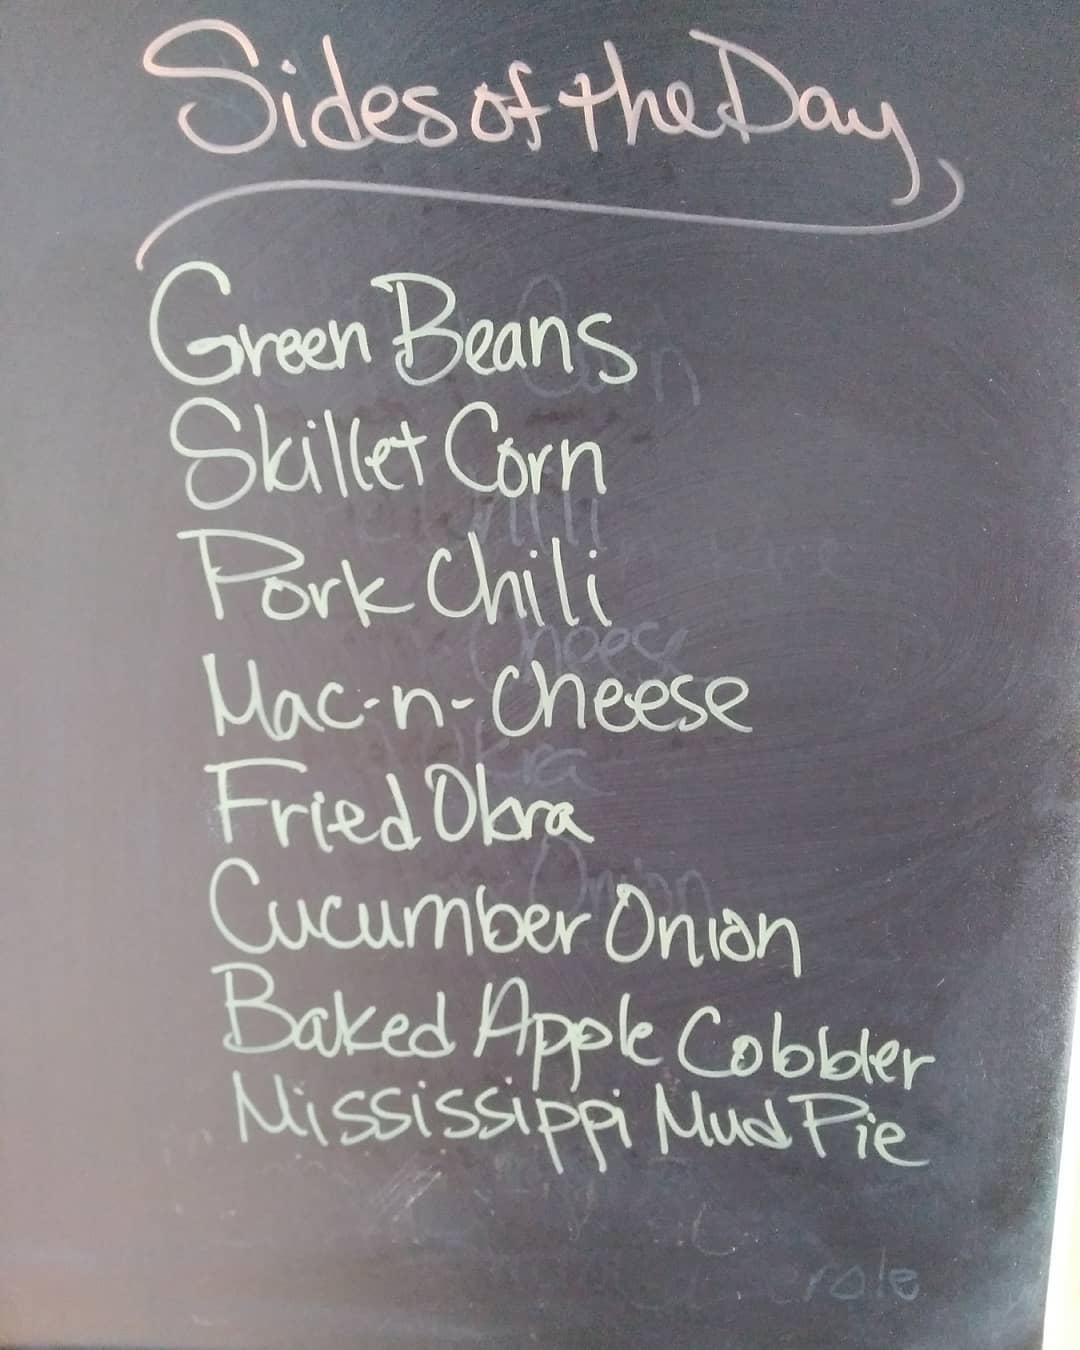 Sides of the Day
Green Beans
Skillet Corn
Pork Chili
Mac-n-Cheese
Fried Okra
Cucumber Onion
Baked Apple Cobbler
Mississippi Mud Pie